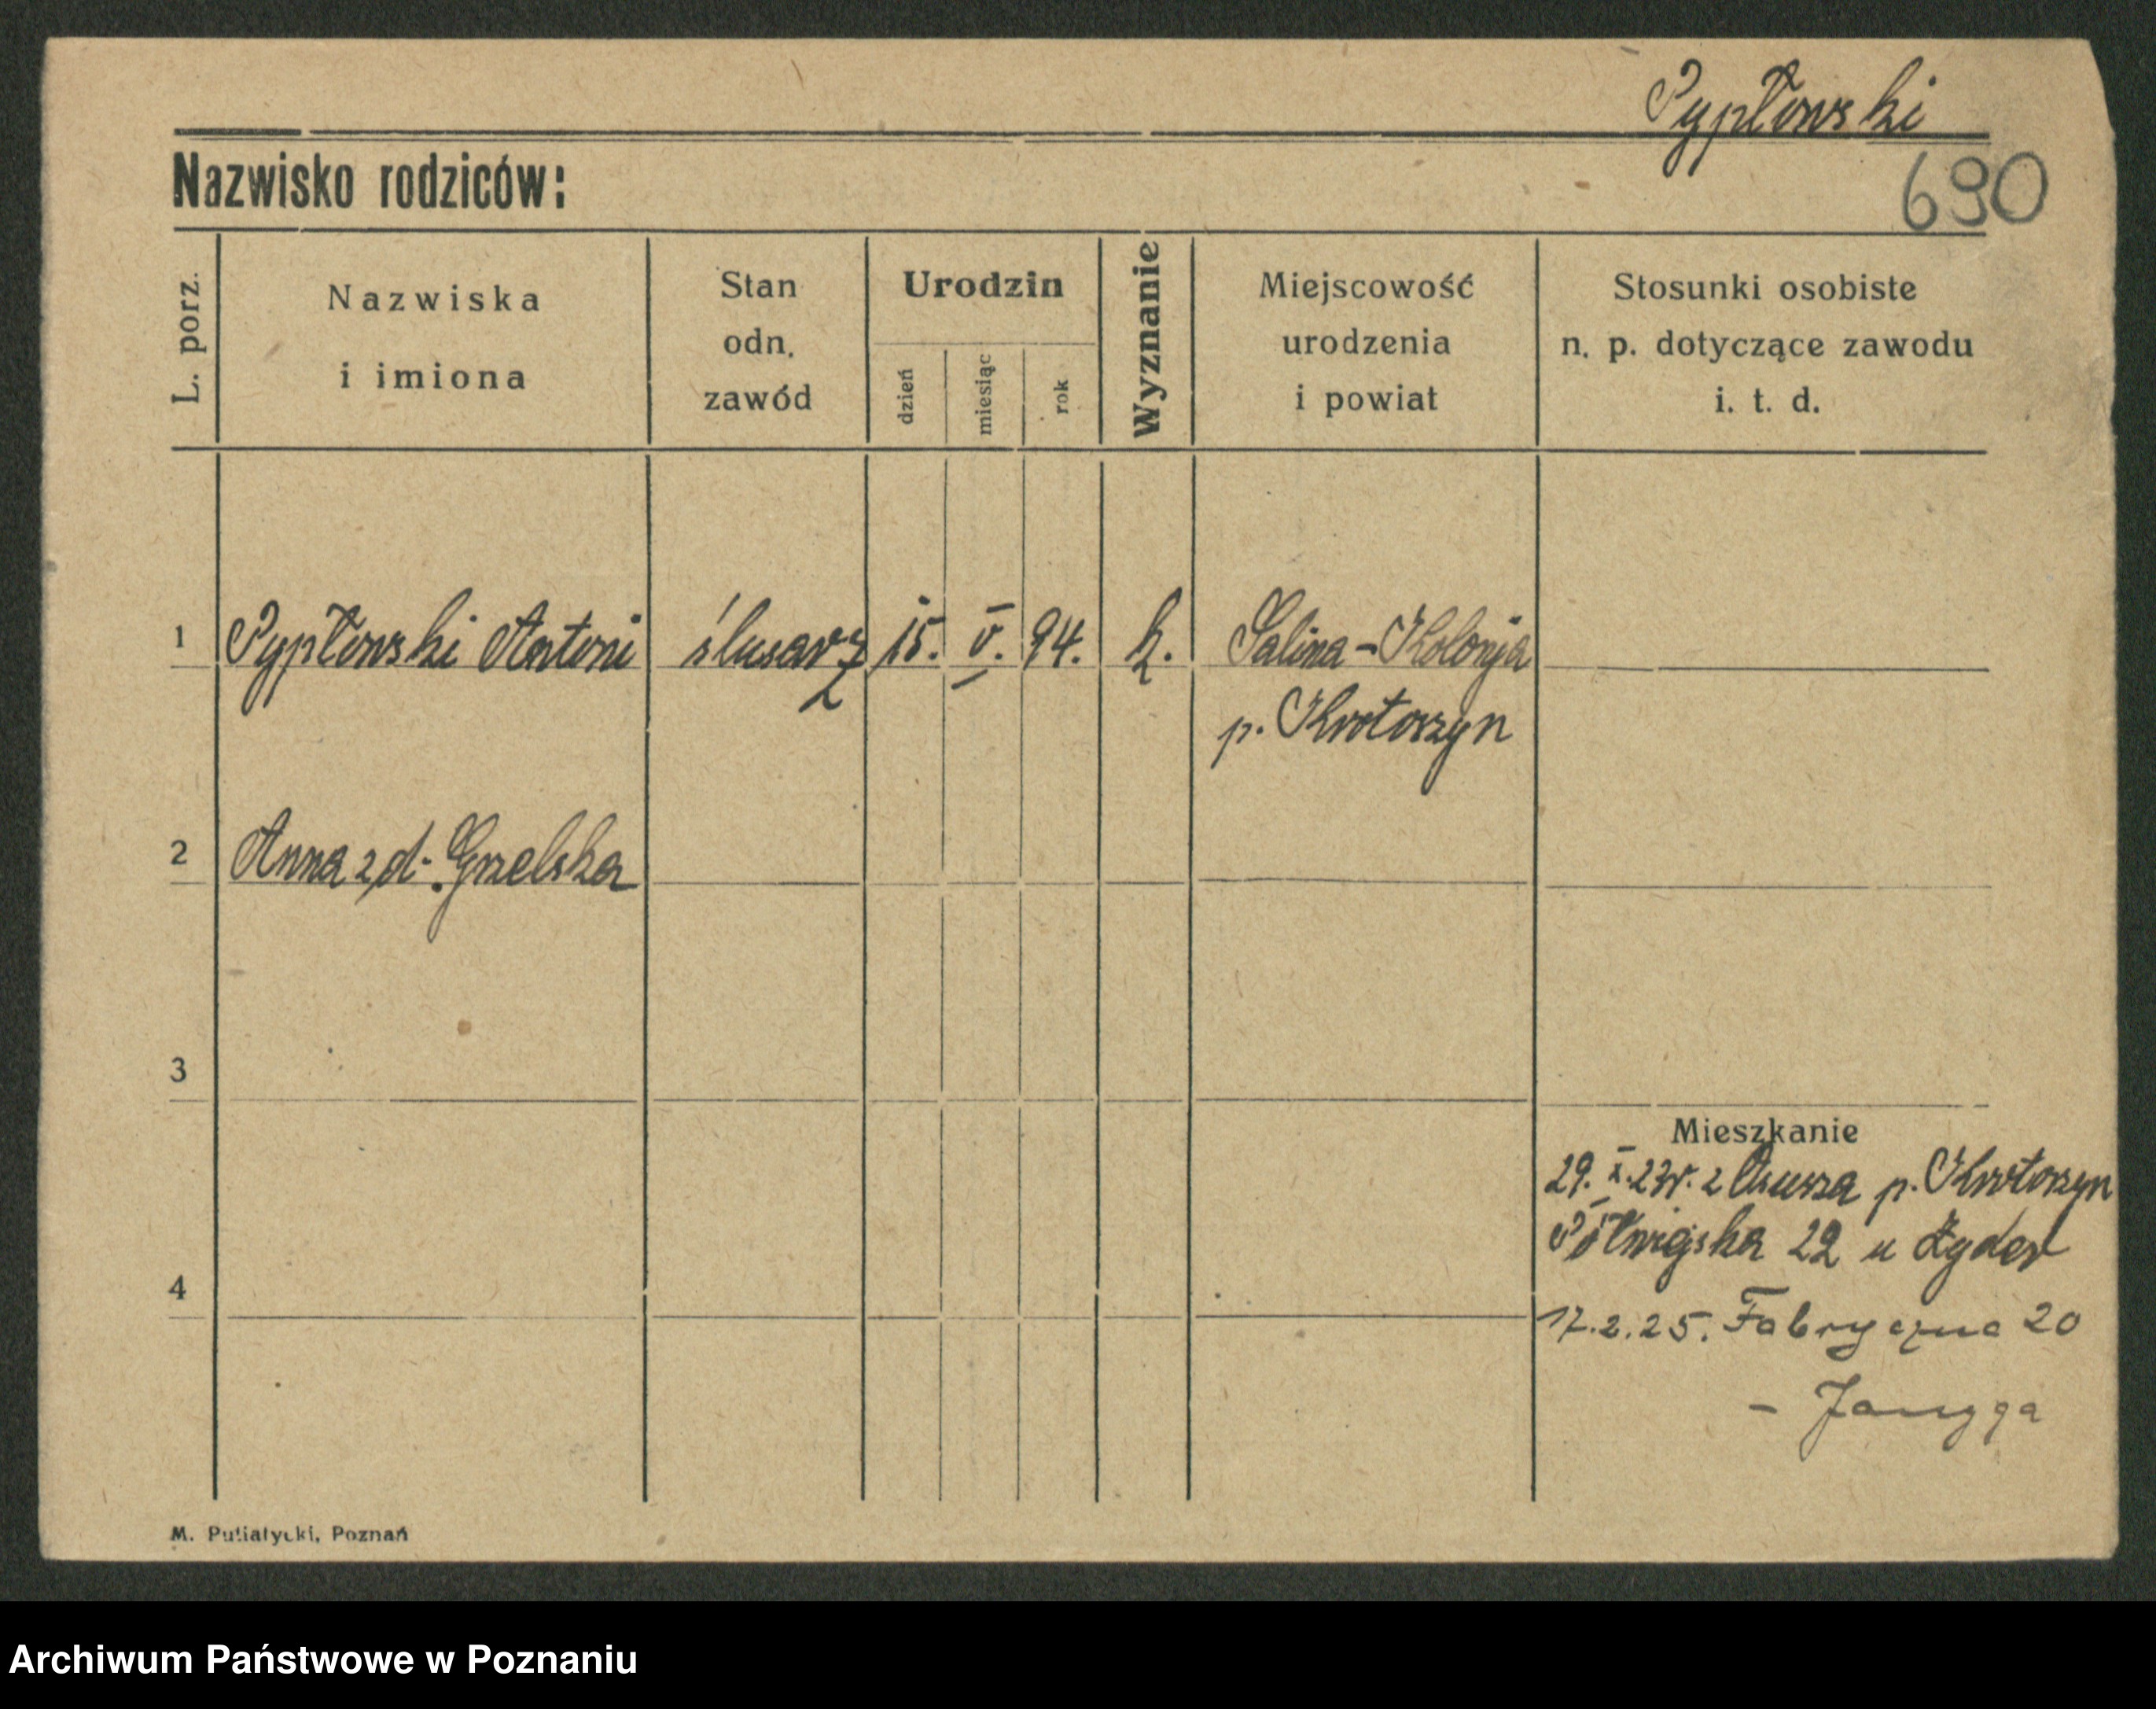 Pypłowski
Nazwisko rodziców:
690
L. porz.
Nazwiska
i imiona
Stan
odn.
zawód
Urodzin
dzień
miesiąc
rok
Wyznanie
Miejscowość
urodzenia
i powiat
Stosunki osobiste
n. p. dotyczące zawodu
i. t. d.
1 Pypłowski Antoni ślusarz 15. V. 94. k. Salina-Kolonja
p. Krotoszyn
2 Anna z d. Grzelska
3
Mieszkanie
29. X. 23r. z p. Krotoszyn
22 u
4
17.2.25. Fabryczna 20
-
M. Putiatycki, Poznań
Archiwum Państwowe w Poznaniu